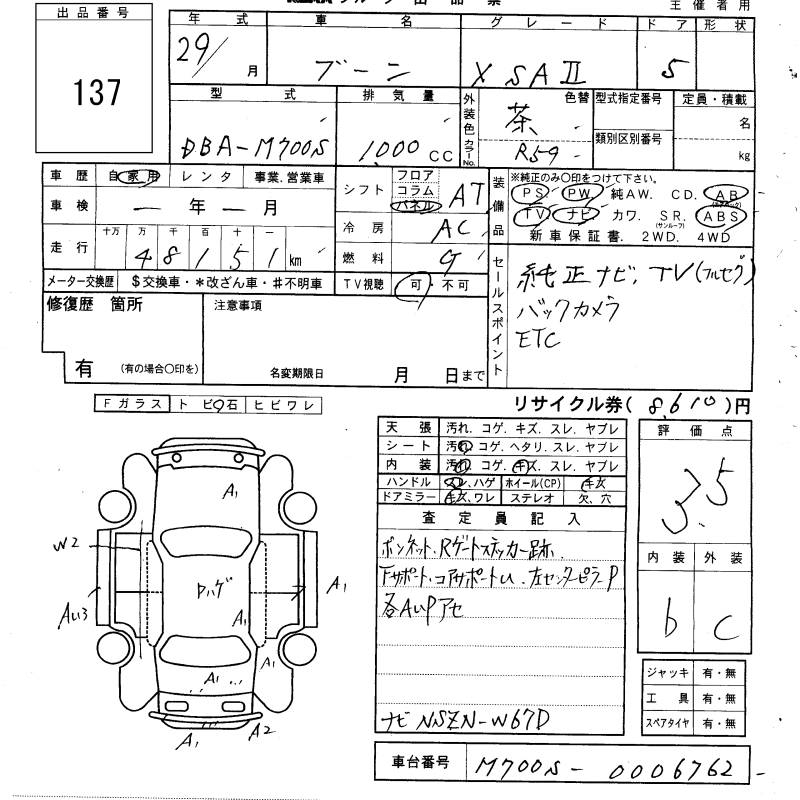 主催者用
出品番号
137
年式 車名 グレード ドア 形状
29/ 月 ブーン X SA II 5
型式 排気量 外装色 色替 型式指定番号 定員・積載
DBA-M700S 1,000 CC 茶 名
カラーNo. R59 類別区別番号 kg
車歴 自家用 レンタ 事業.営業車
車検 ー年ー月
走行 十万 万 千 百 十 一
48151 km
メーター交換歴 $交換車・*改ざん車・#不明車
シフト フロア コラム パネル AT
冷房 AC
燃料 G
TV視聴 可・不可
装備品 ※純正のみ○印をつけて下さい。
PS PW 純AW. CD. AB
TV ナビ カワ. SR. ABS
(サンルーフ)
新車保証書. 2WD. 4WD
セールスポイント
純正ナビ、TV(フルセグ)
バックカメラ
ETC
修復歴 箇所
有 (有の場合○印を)
注意事項
名変期限日 月 日まで
リサイクル券(8,610)円
Fガラス トビ石 ヒビワレ
天張 汚れ. コゲ. キズ. スレ. ヤブレ
シート 汚れ コゲ. ヘタリ. スレ. ヤブレ
内装 汚れ コゲ. キズ. スレ. ヤブレ
ハンドル スレ、ハゲ ホイール(CP) キズ
ドアミラー キズ、ワレ ステレオ 欠、穴
査定員記入
ボンネット、Rゲートステッカー跡.
Fサポート、コアサポートU、左センターピラーP
各AUPアセ
ナビ NSZN-W67D
評価点
3.5
内装 外装
b C
ジャッキ 有・無
工具 有・無
スペアタイヤ 有・無
A1
W2
ハゲ
A1
AU3
A1
A1
A1
A1
A2
車台番号 M700S-0006762